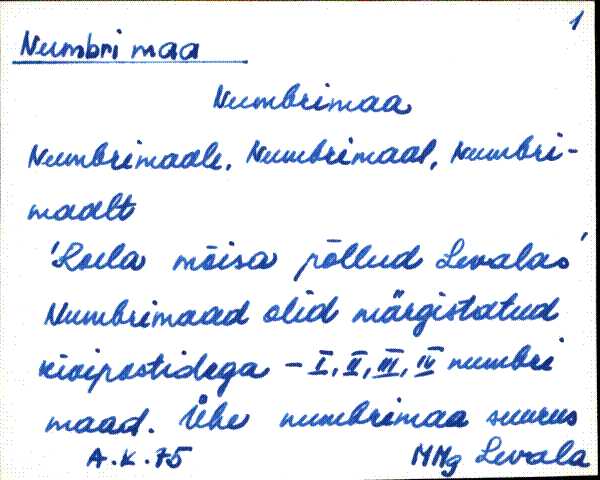 1
Numbri maa
Numbrimaa
Numbrimaale, Numbrimaal, Numbri-
maalt
'Roela mõisa põllud Levalas'
Numbrimaad olid märgistatud
kivipostidega – I, II, III, IV numbri
maad. Ühe numbrimaa suurus
A.K. 75 MMg Levala